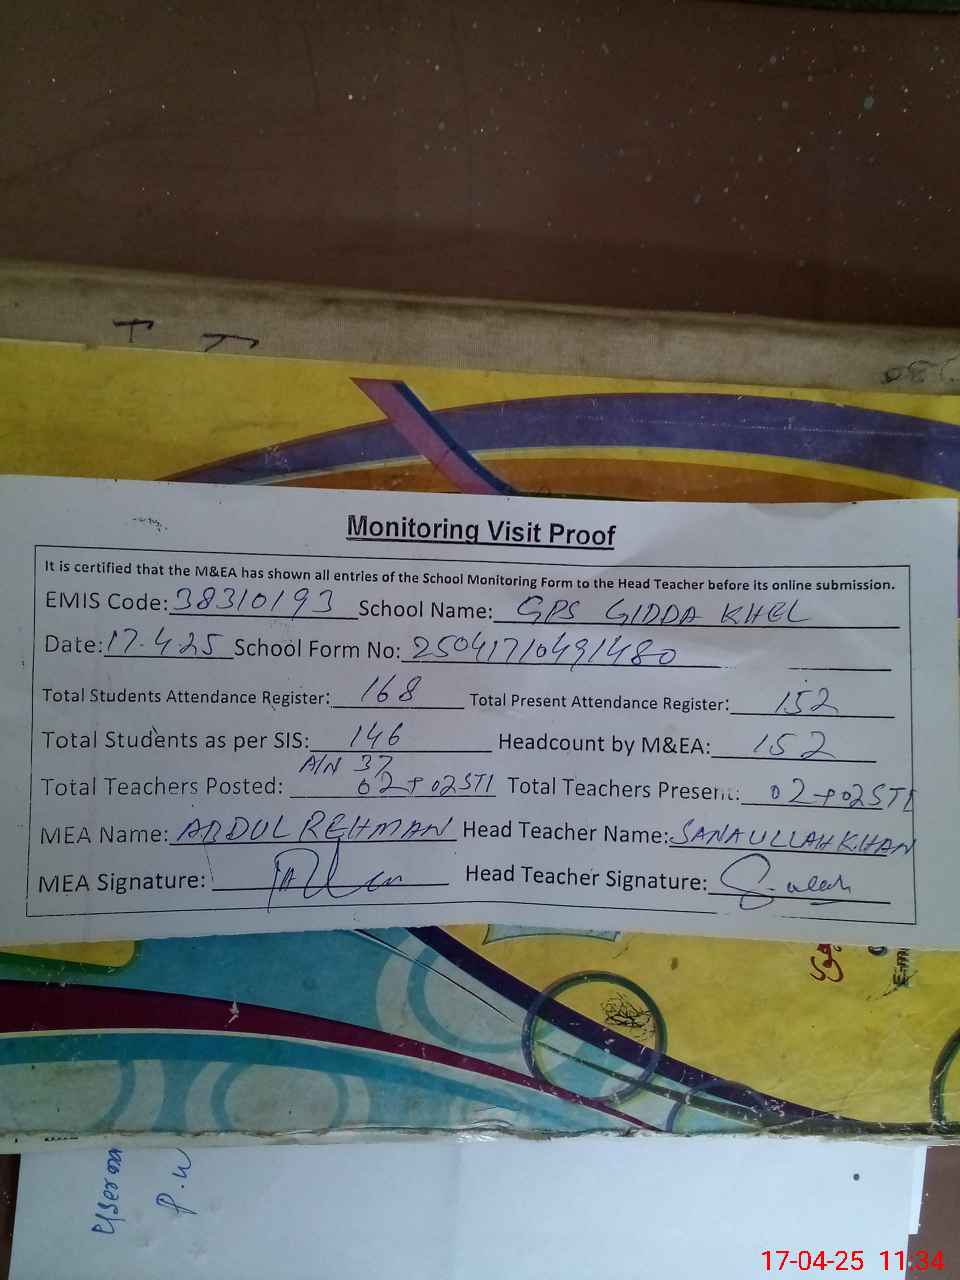 Monitoring Visit Proof
It is certified that the M&EA has shown all entries of the School Monitoring Form to the Head Teacher before its online submission.
EMIS Code: 38310193 School Name: GPS GIDDA KHEL
Date: 17.4.25 School Form No: 25041710491480
Total Students Attendance Register: 168 Total Present Attendance Register: 152
Total Students as per SIS: 146 Headcount by M&EA: 152
A/N 37
Total Teachers Posted: 02+02STI Total Teachers Present: 02+02STI
MEA Name: ABDUL REHMAN Head Teacher Name: SANAULLAH KHAN
MEA Signature: Head Teacher Signature:
17-04-25 11:34